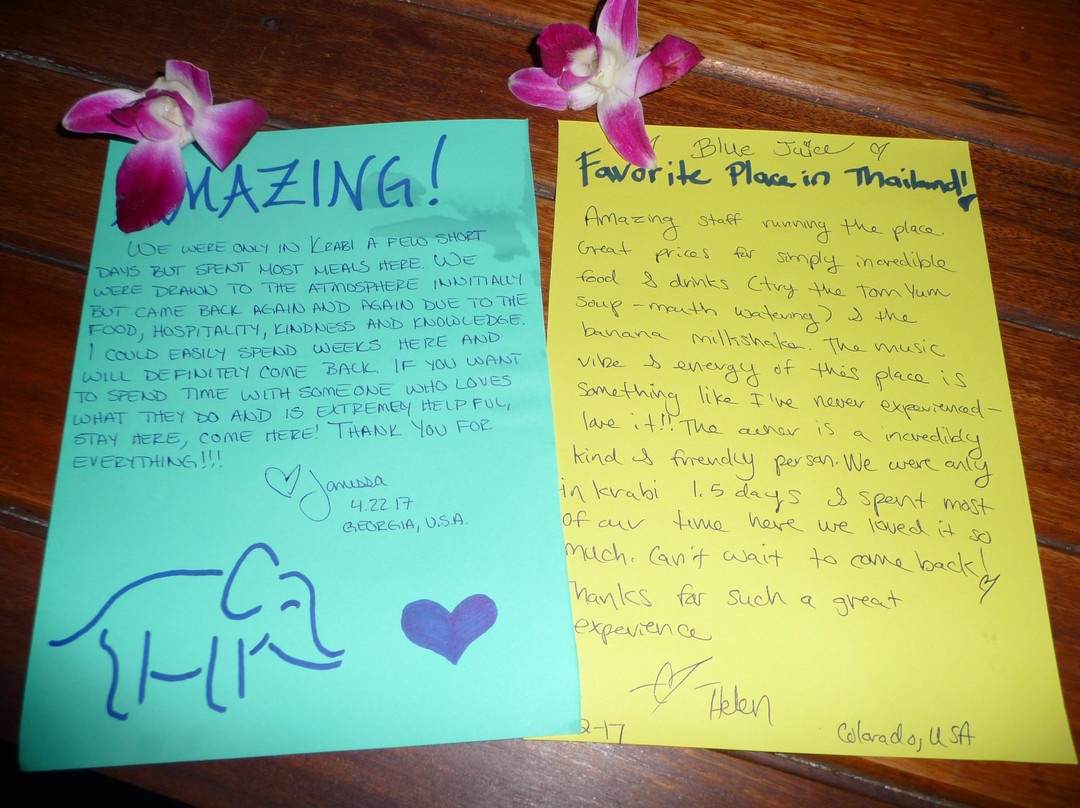 AMAZING!
WE WERE ONLY IN KRABI A FEW SHORT
DAYS BUT SPENT MOST MEALS HERE. WE
WERE DRAWN TO THE ATMOSPHERE INNITIALLY
BUT CAME BACK AGAIN AND AGAIN DUE TO THE
FOOD, HOSPITALITY, KINDNESS AND KNOWLEDGE.
I COULD EASILY SPEND WEEKS HERE AND
WILL DEFINITELY COME BACK. IF YOU WANT
TO SPEND TIME WITH SOMEONE WHO LOVES
WHAT THEY DO AND IS EXTREMELY HELPFUL,
STAY HERE, COME HERE! THANK YOU FOR
EVERYTHING!!!
Janessa
4.22.17
GEORGIA, U.S.A.
Blue Juice
Favorite Place in Thailand!
Amazing staff running the place.
Great prices for simply incredible
food & drinks (try the Tom Yum
soup - mouth watering) & the
banana milkshake. The music
vibe & energy of this place is
something like I've never experienced -
love it!! The owner is a incredibly
kind & friendly person. We were only
in Krabi 1.5 days & spent most
of our time here we loved it so
much. Can't wait to come back!
Thanks for such a great
experience
Helen
2-17
Colorado, USA